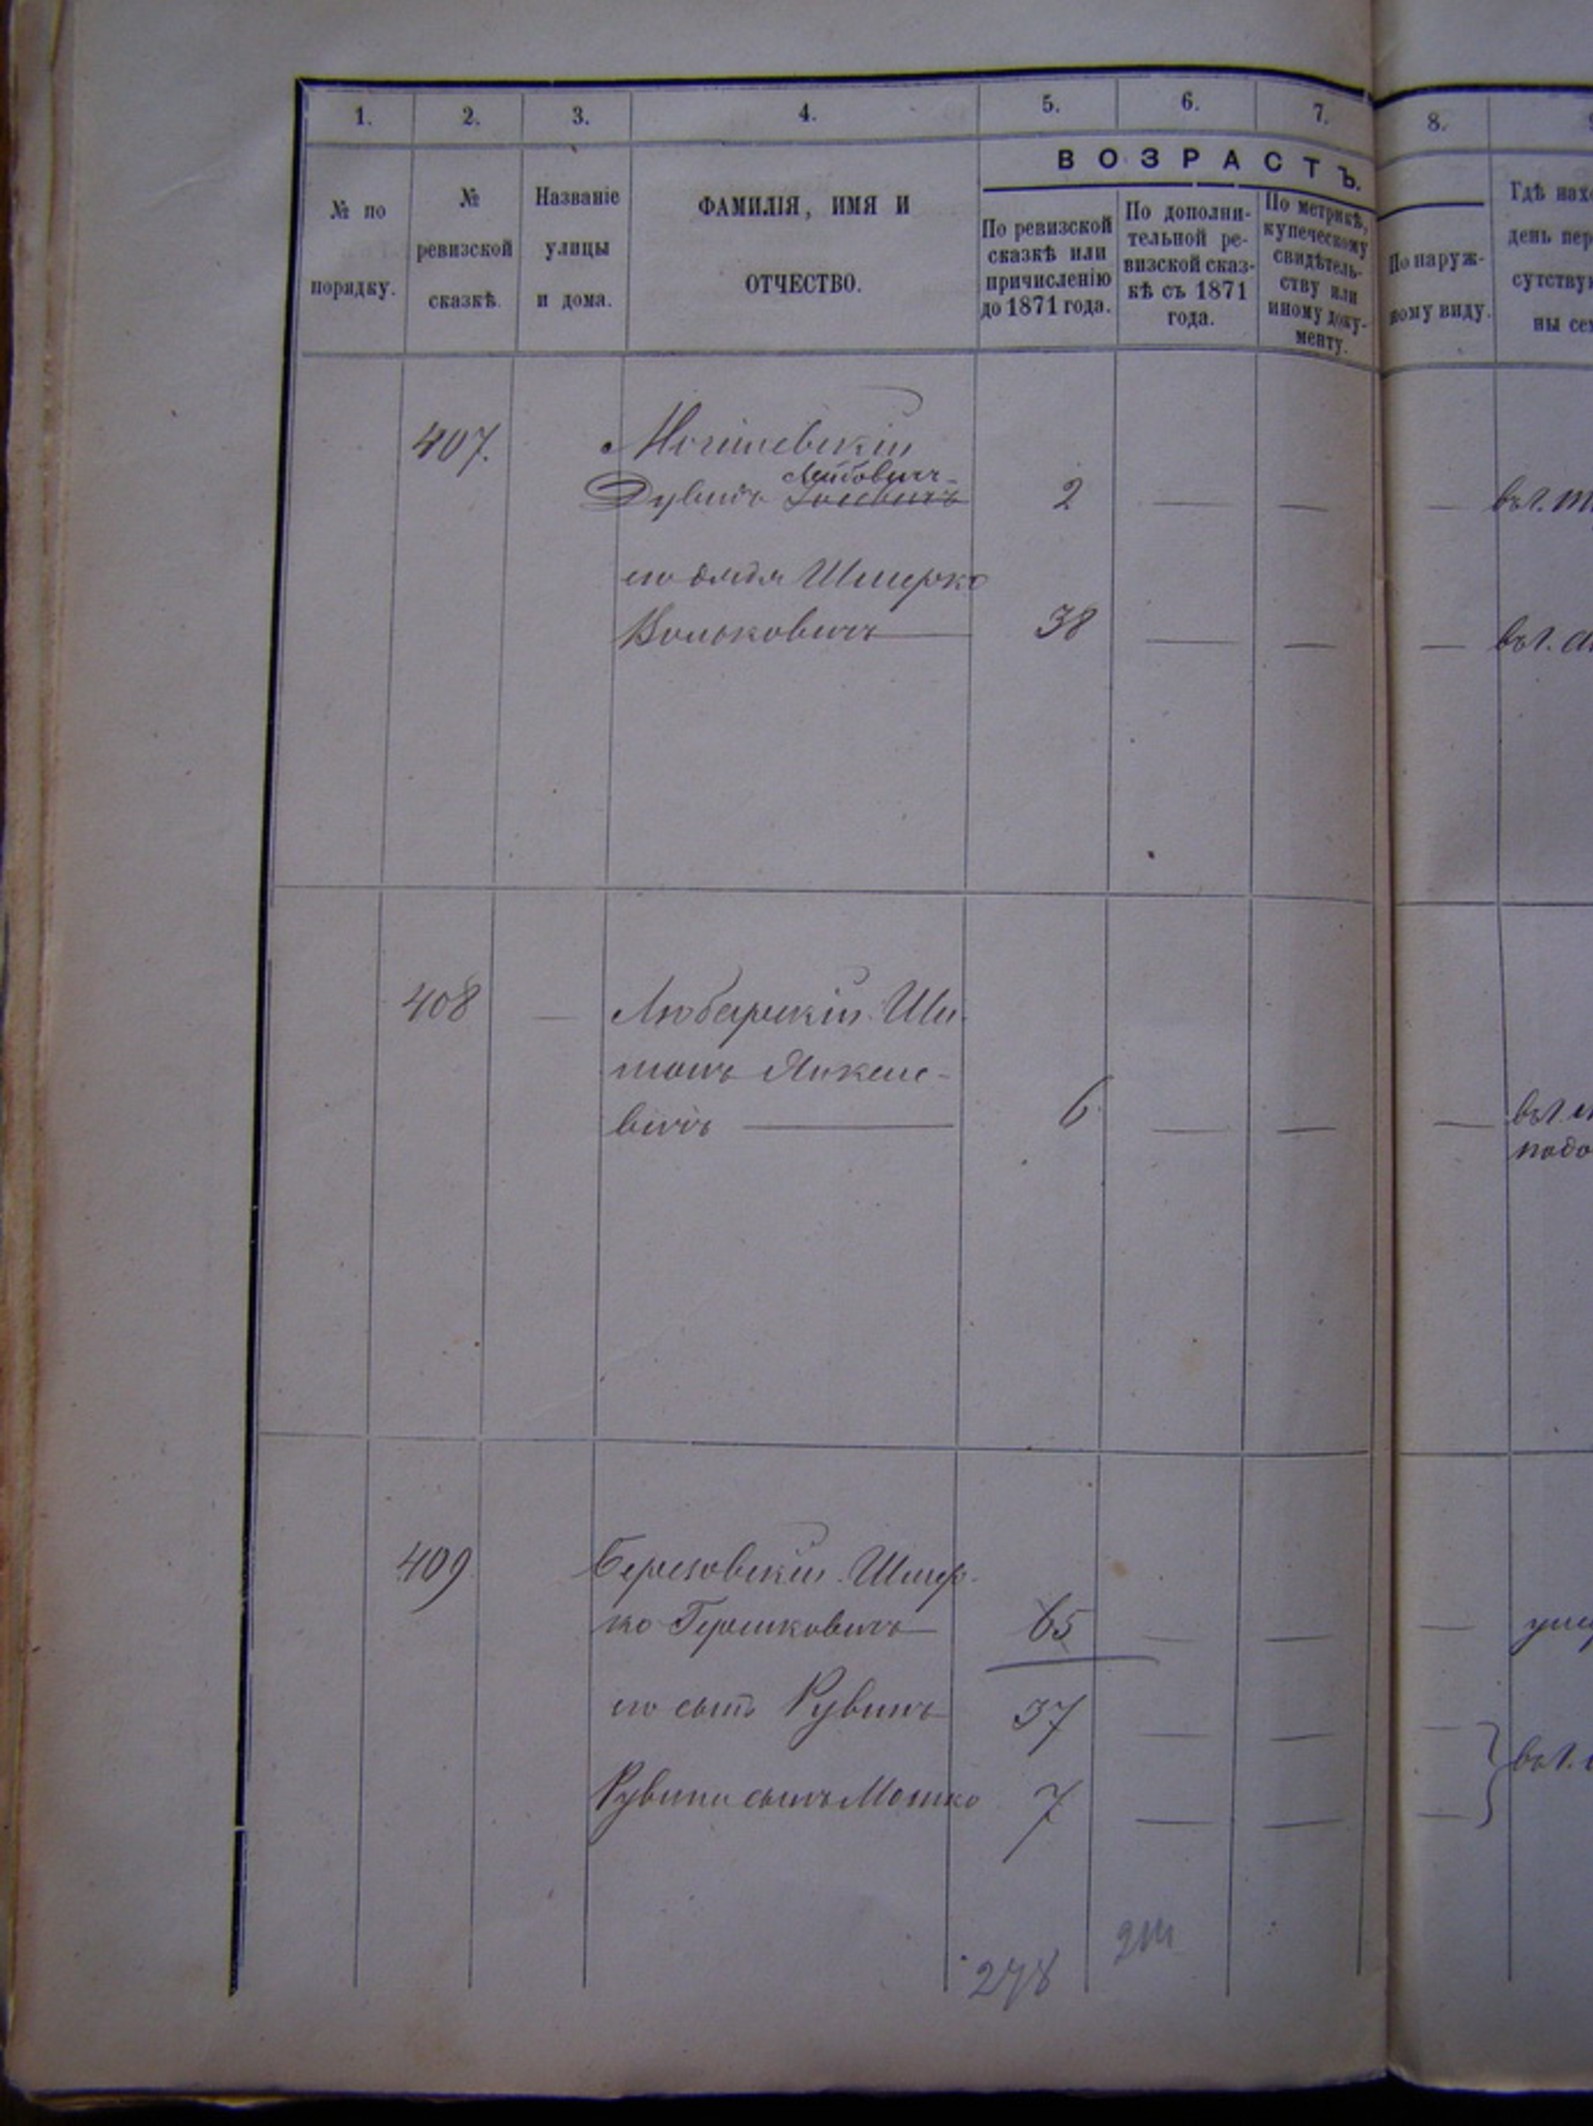 1. 2. 3. 4. 5. 6. 7. 8.
№ по порядку.
№ ревизской сказкѣ.
Названіе улицы и дома.
ФАМИЛІЯ, ИМЯ И ОТЧЕСТВО.
ВОЗРАСТЪ.
По ревизской сказкѣ или причисленію до 1871 года.
По дополнительной ревизской сказкѣ съ 1871 года.
По метрикѣ, купеческому свидѣтельству или иному документу.
По наружному виду.
Гдѣ нахо
день пер
сутству
ны се
407.
Дувидъ Лейбовичъ 2 — — — въ г.
его дядя Шмерко
Вольковичъ 38 — — — въ г.
408 — Любарскій Ши-
манъ Янкеле-
вичъ 6 — — — въ г.
409 Березовскій Шмер-
ко Гершковичъ 65 — — — умер
его сынъ Рувинъ 37 — — —
въ г.
Рувина сынъ Мошко 7 — — —
278